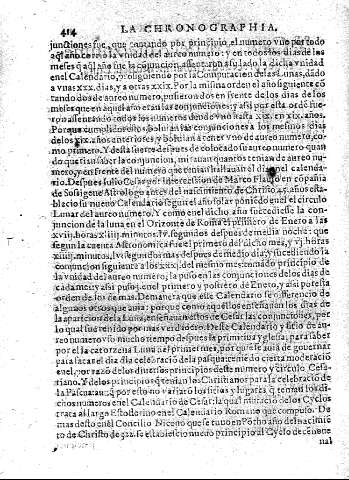 414 LA CHRONOGRAPHIA.
junctiones fue, que contando por principio, el numero vno por todo
aql año corrio la vnidad del aureo numero: y en todos los dias de los
meses q aql año fue la conjuncion, assentaron a su lado la dicha vnidad
en el Calendario, prosiguiendo por la Computacion de las Lunas, dādo
a vnas xxx. dias, y a otras xxix. Por la misma orden el año siguiente cō
tando dos de aureo numero, pusieron dos en frente de los dias de los
meses que en aquel año eran las conjunciones: y assi por esta ordē fue-
ron assentando todos los numeros desde vno hasta xix. en xix. años.
Porque cumplidos estos, boluian las conjunciones a los mesmos dias
de los xix. años anteriores, y boluian a tener vno de aureo numero, co
mo primero. Y desta suerte despues de colocado su aureo numero quan
do querian saber la conjuncion, mirauan quantos tenian de aureo nu-
mero, y en frente del numero que tenian hallauan el dia en el calenda-
rio. Despues Iulio Cesar por intercession de Marco Flauio en cōpañia
de Sosigene Astrologo antes del nacimiento de Christo 45. años esta-
blecio su nueuo Calendario segun el año solar poniēdo en el el circulo
Lunar del aureo numero. Y como en el dicho año succediesse la con-
juncion de la luna en el Orizonte de Roma el primero de Enero a las
xviij. horas xiiij. minutos. lv. segundos despues de media noche: que
segun la cuenta Astronomica fue el primero del dicho mes, y vj. horas
xiiij. minutos, lv. segundos mas despues de medio dia, y sucediendo la
conjuncion siguiente a los xxxj. del mesmo mes: tomādo principio de
la vnidad del aureo numero, la puso en las conjunciones de los dias de
cada mes: y assi puso j. en el primero y postrero de Enero, y assi por esta
orden de los de mas. De manera que este Calendario fue differente de
algunos otros que auia: porque como aquellos enseñauan los dias de
la aparicion de la Luna, enseñauan estos de Cesar las conjunciones, por
lo qual fue tenido por mas verdadero. Deste Calendario y sitio de au-
reo numero vso mucho tiempo despues la primitiua yglesia, para saber
por el la catorzena Luna del primer mes, por que se auia de gouernar
para sacar el dia dela celebracio de la pasqua: teniēdo cierta moderació
en el, por razō delos diuersos principios deste numero y circulo Cesa-
riano. Y de los principios q̄ tenian los Christianos para la celebració de
la Pascua: aunq̄ por esto no variaró los sitios y lugares q̄ tenian los di-
chos numeros en el Calendario de Cesar: la qual mutació de los Cyclos
trata a la largo Estoflorino en el Calendario Romano que compuso. De
mas desto en el Concilio Niceno que se tuuo en Potho año del nacimie
to de Christo de 322. se establecio nueuo principio al Cyclo de cenoue
nal